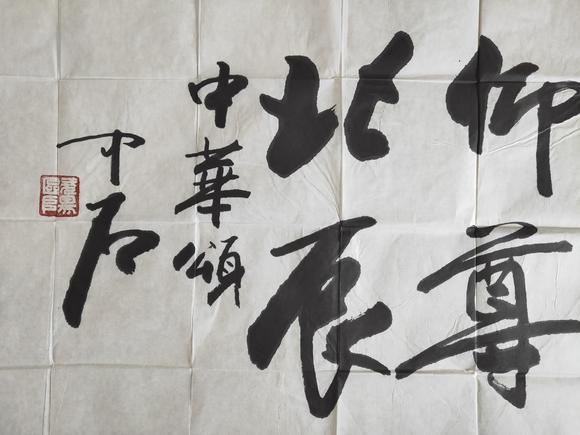 仰尊
北辰
中華頌
中石